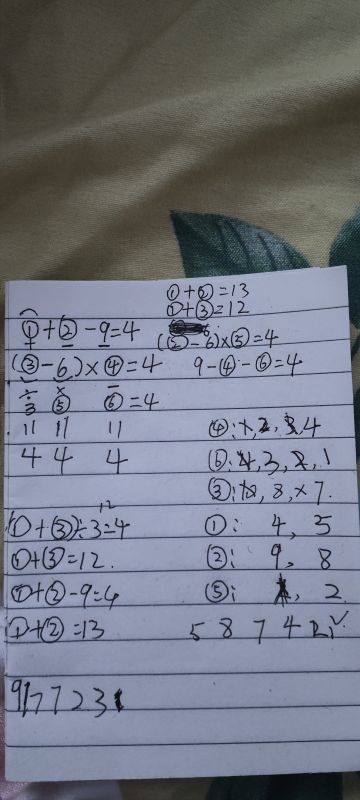 ①+②=13
①+③=12
①+②-9=4
(②-6)×⑤=4
(③-6)×④=4
9-④-⑥=4
÷ × -
3 ⑤ ⑥=4
11 11 11
4 4 4
④:1,2,3,4
⑥:4,3,2,1
③:10,8,×7.
12
(①+③)÷3=4
①: 4,5
①+③=12.
②: 9,8
①+②-9=4
⑤: 2
①+②=13
5 8 7 4 2 1✓